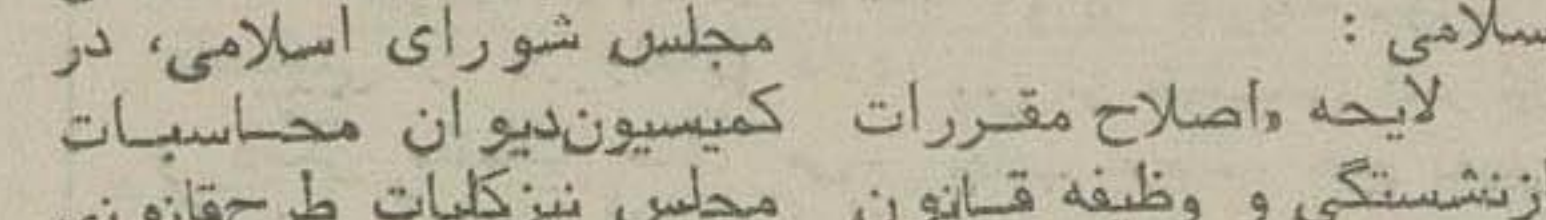 سلامی :
لایحه واصلاح مقررات
ازنشستگی و وظیفه قانون
مجلس شورای اسلامی، در
کمیسیون‌دیوان محاسبات
مجلس نیزکلیات طرح‌قانونی